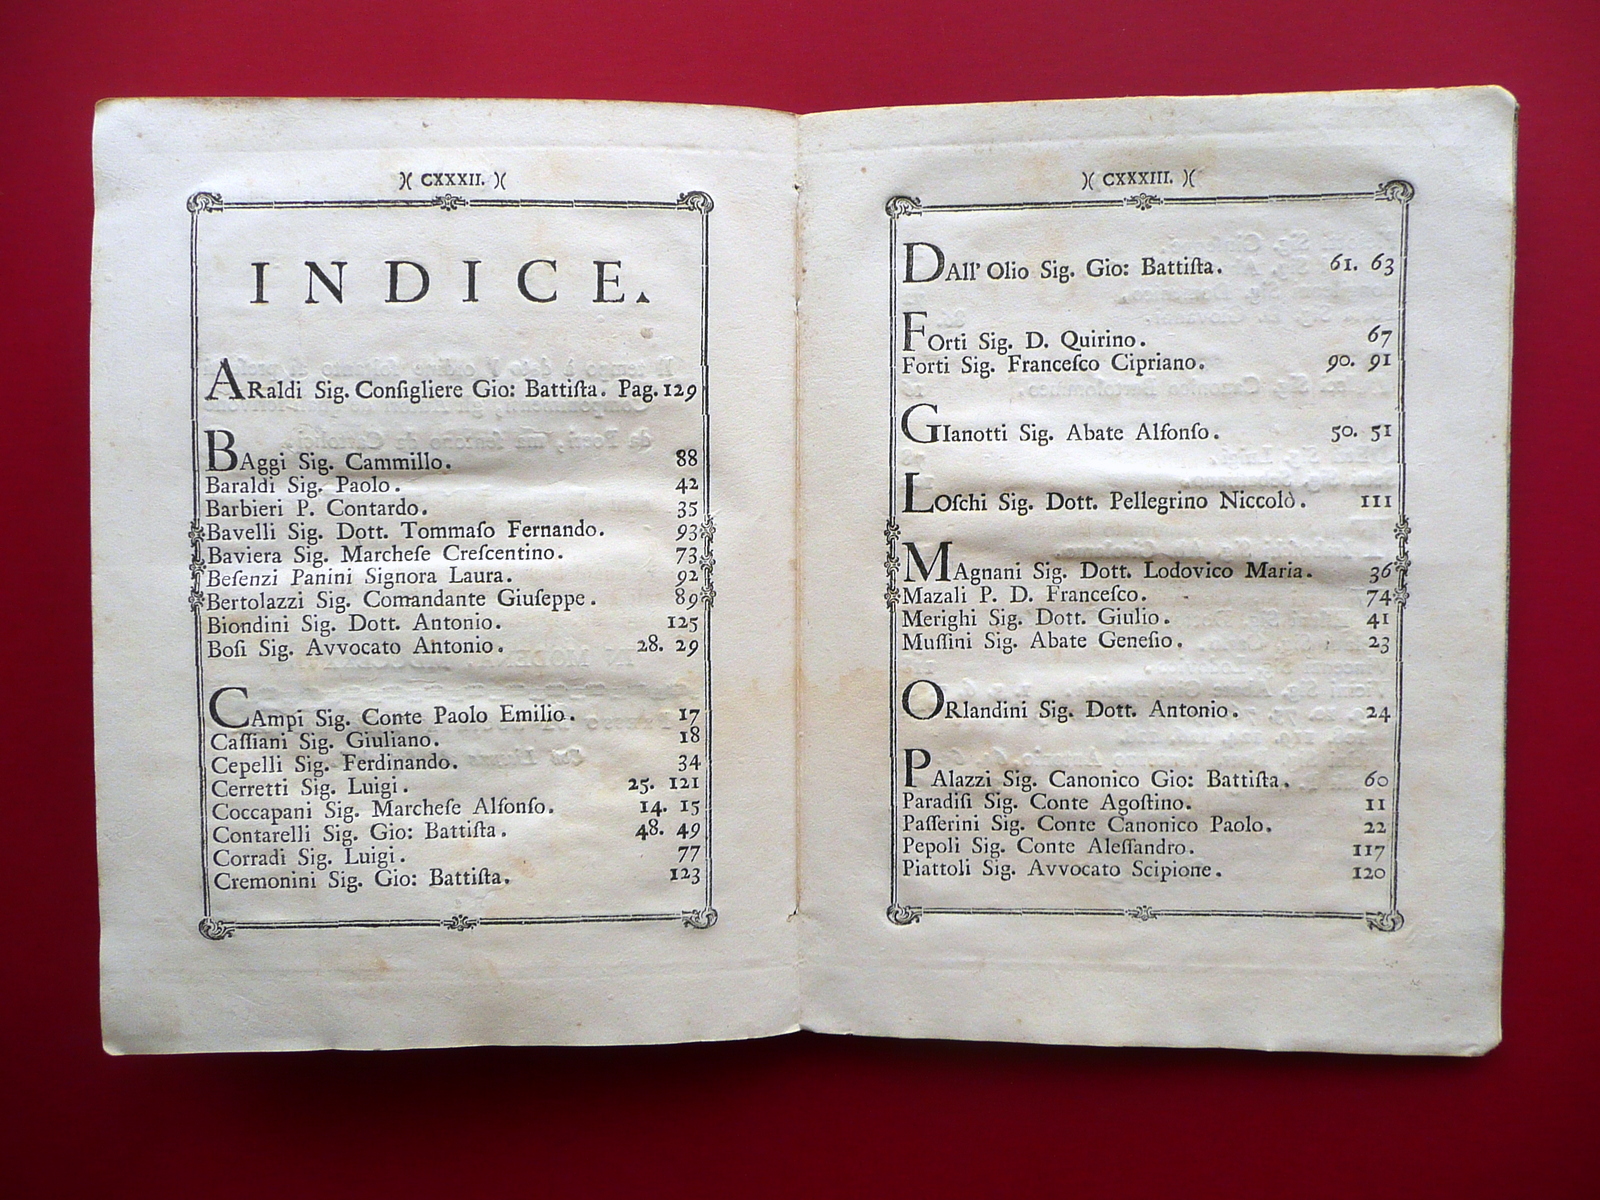 )( CXXXII. )(
INDICE.
ARaldi Sig. Conſigliere Gio: Battiſta. Pag. 129
BAggi Sig. Cammillo. 88
Baraldi Sig. Paolo. 42
Barbieri P. Contardo. 35
Bavelli Sig. Dott. Tommaſo Fernando. 93
Baviera Sig. Marcheſe Creſcentino. 73
Beſenzi Panini Signora Laura. 92
Bertolazzi Sig. Comandante Giuſeppe. 89
Biondini Sig. Dott. Antonio. 125
Boſi Sig. Avvocato Antonio. 28. 29
CAmpi Sig. Conte Paolo Emilio. 17
Caſſiani Sig. Giuliano. 18
Cepelli Sig. Ferdinando. 34
Cerretti Sig. Luigi. 25. 121
Coccapani Sig. Marcheſe Alfonſo. 14. 15
Contarelli Sig. Gio: Battiſta. 48. 49
Corradi Sig. Luigi. 77
Cremonini Sig. Gio: Battiſta. 123
)( CXXXIII. )(
DAll' Olio Sig. Gio: Battiſta. 61. 63
FOrti Sig. D. Quirino. 67
Forti Sig. Franceſco Cipriano. 90. 91
GIanotti Sig. Abate Alfonſo. 50. 51
LOſchi Sig. Dott. Pellegrino Niccolò. 111
MAgnani Sig. Dott. Lodovico Maria. 36
Mazali P. D. Franceſco. 74
Merighi Sig. Dott. Giulio. 41
Muſſini Sig. Abate Geneſio. 23
ORlandini Sig. Dott. Antonio. 24
PAlazzi Sig. Canonico Gio: Battiſta. 60
Paradiſi Sig. Conte Agoſtino. 11
Paſſerini Sig. Conte Canonico Paolo. 22
Pepoli Sig. Conte Aleſſandro. 117
Piattoli Sig. Avvocato Scipione. 120